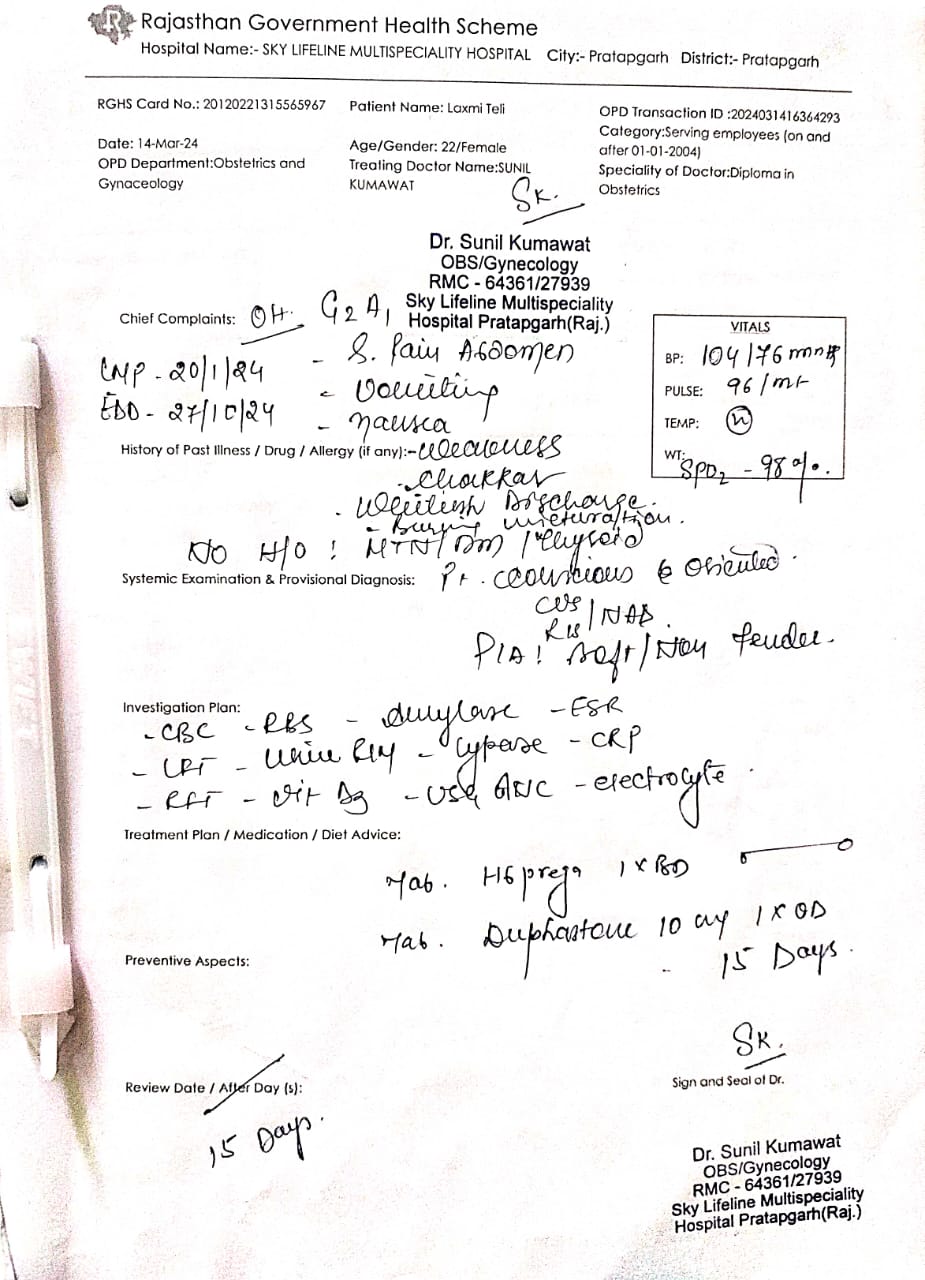 Rajasthan Government Health Scheme
Hospital Name:- SKY LIFELINE MULTISPECIALITY HOSPITAL City:- Pratapgarh District:- Pratapgarh
RGHS Card No.: 20120221315565967
Date: 14-Mar-24
OPD Department:Obstetrics and
Gynaceology
Patient Name: Laxmi Teli
Age/Gender: 22/Female
Treating Doctor Name:SUNIL
KUMAWAT
OPD Transaction ID :2024031416364293
Category:Serving employees (on and
after 01-01-2004)
Speciality of Doctor:Diploma in
Obstetrics
SK.
Dr. Sunil Kumawat
OBS/Gynecology
RMC - 64361/27939
Sky Lifeline Multispeciality
Hospital Pratapgarh(Raj.)
Chief Complaints: OH. G2 A1
LMP - 20/1/24
EDD - 27/10/24
- S. Pain Abdomen
- Vomiting
- nausea
VITALS
BP: 104/76 mmHg
PULSE: 96/mt
TEMP: N
WT:
SPO2 - 98%.
History of Past Illness / Drug / Allergy (if any):- Weakness
- Chakkar
- Whitish Discharge.
- Burning micturation.
NO H/O : HTN/DM/Thyroid
Systemic Examination & Provisional Diagnosis: Pt. conscious & Oriented.
CVS
RS /NAD.
P/A: Soft/Non tender.
Investigation Plan:
- CBC - RBS - Amylase - ESR
- LFT - Urine R/M - Lypase - CRP
- RFT - Vit D3 - USG ANC - electrocyte
Treatment Plan / Medication / Diet Advice:
Tab. 1 x BD
Tab. Duphastone 10 mg 1 x OD
- 15 Days.
Preventive Aspects:
SK.
Sign and Seal of Dr.
Review Date / After Day (s):
15 Days.
Dr. Sunil Kumawat
OBS/Gynecology
RMC - 64361/27939
Sky Lifeline Multispeciality
Hospital Pratapgarh(Raj.)